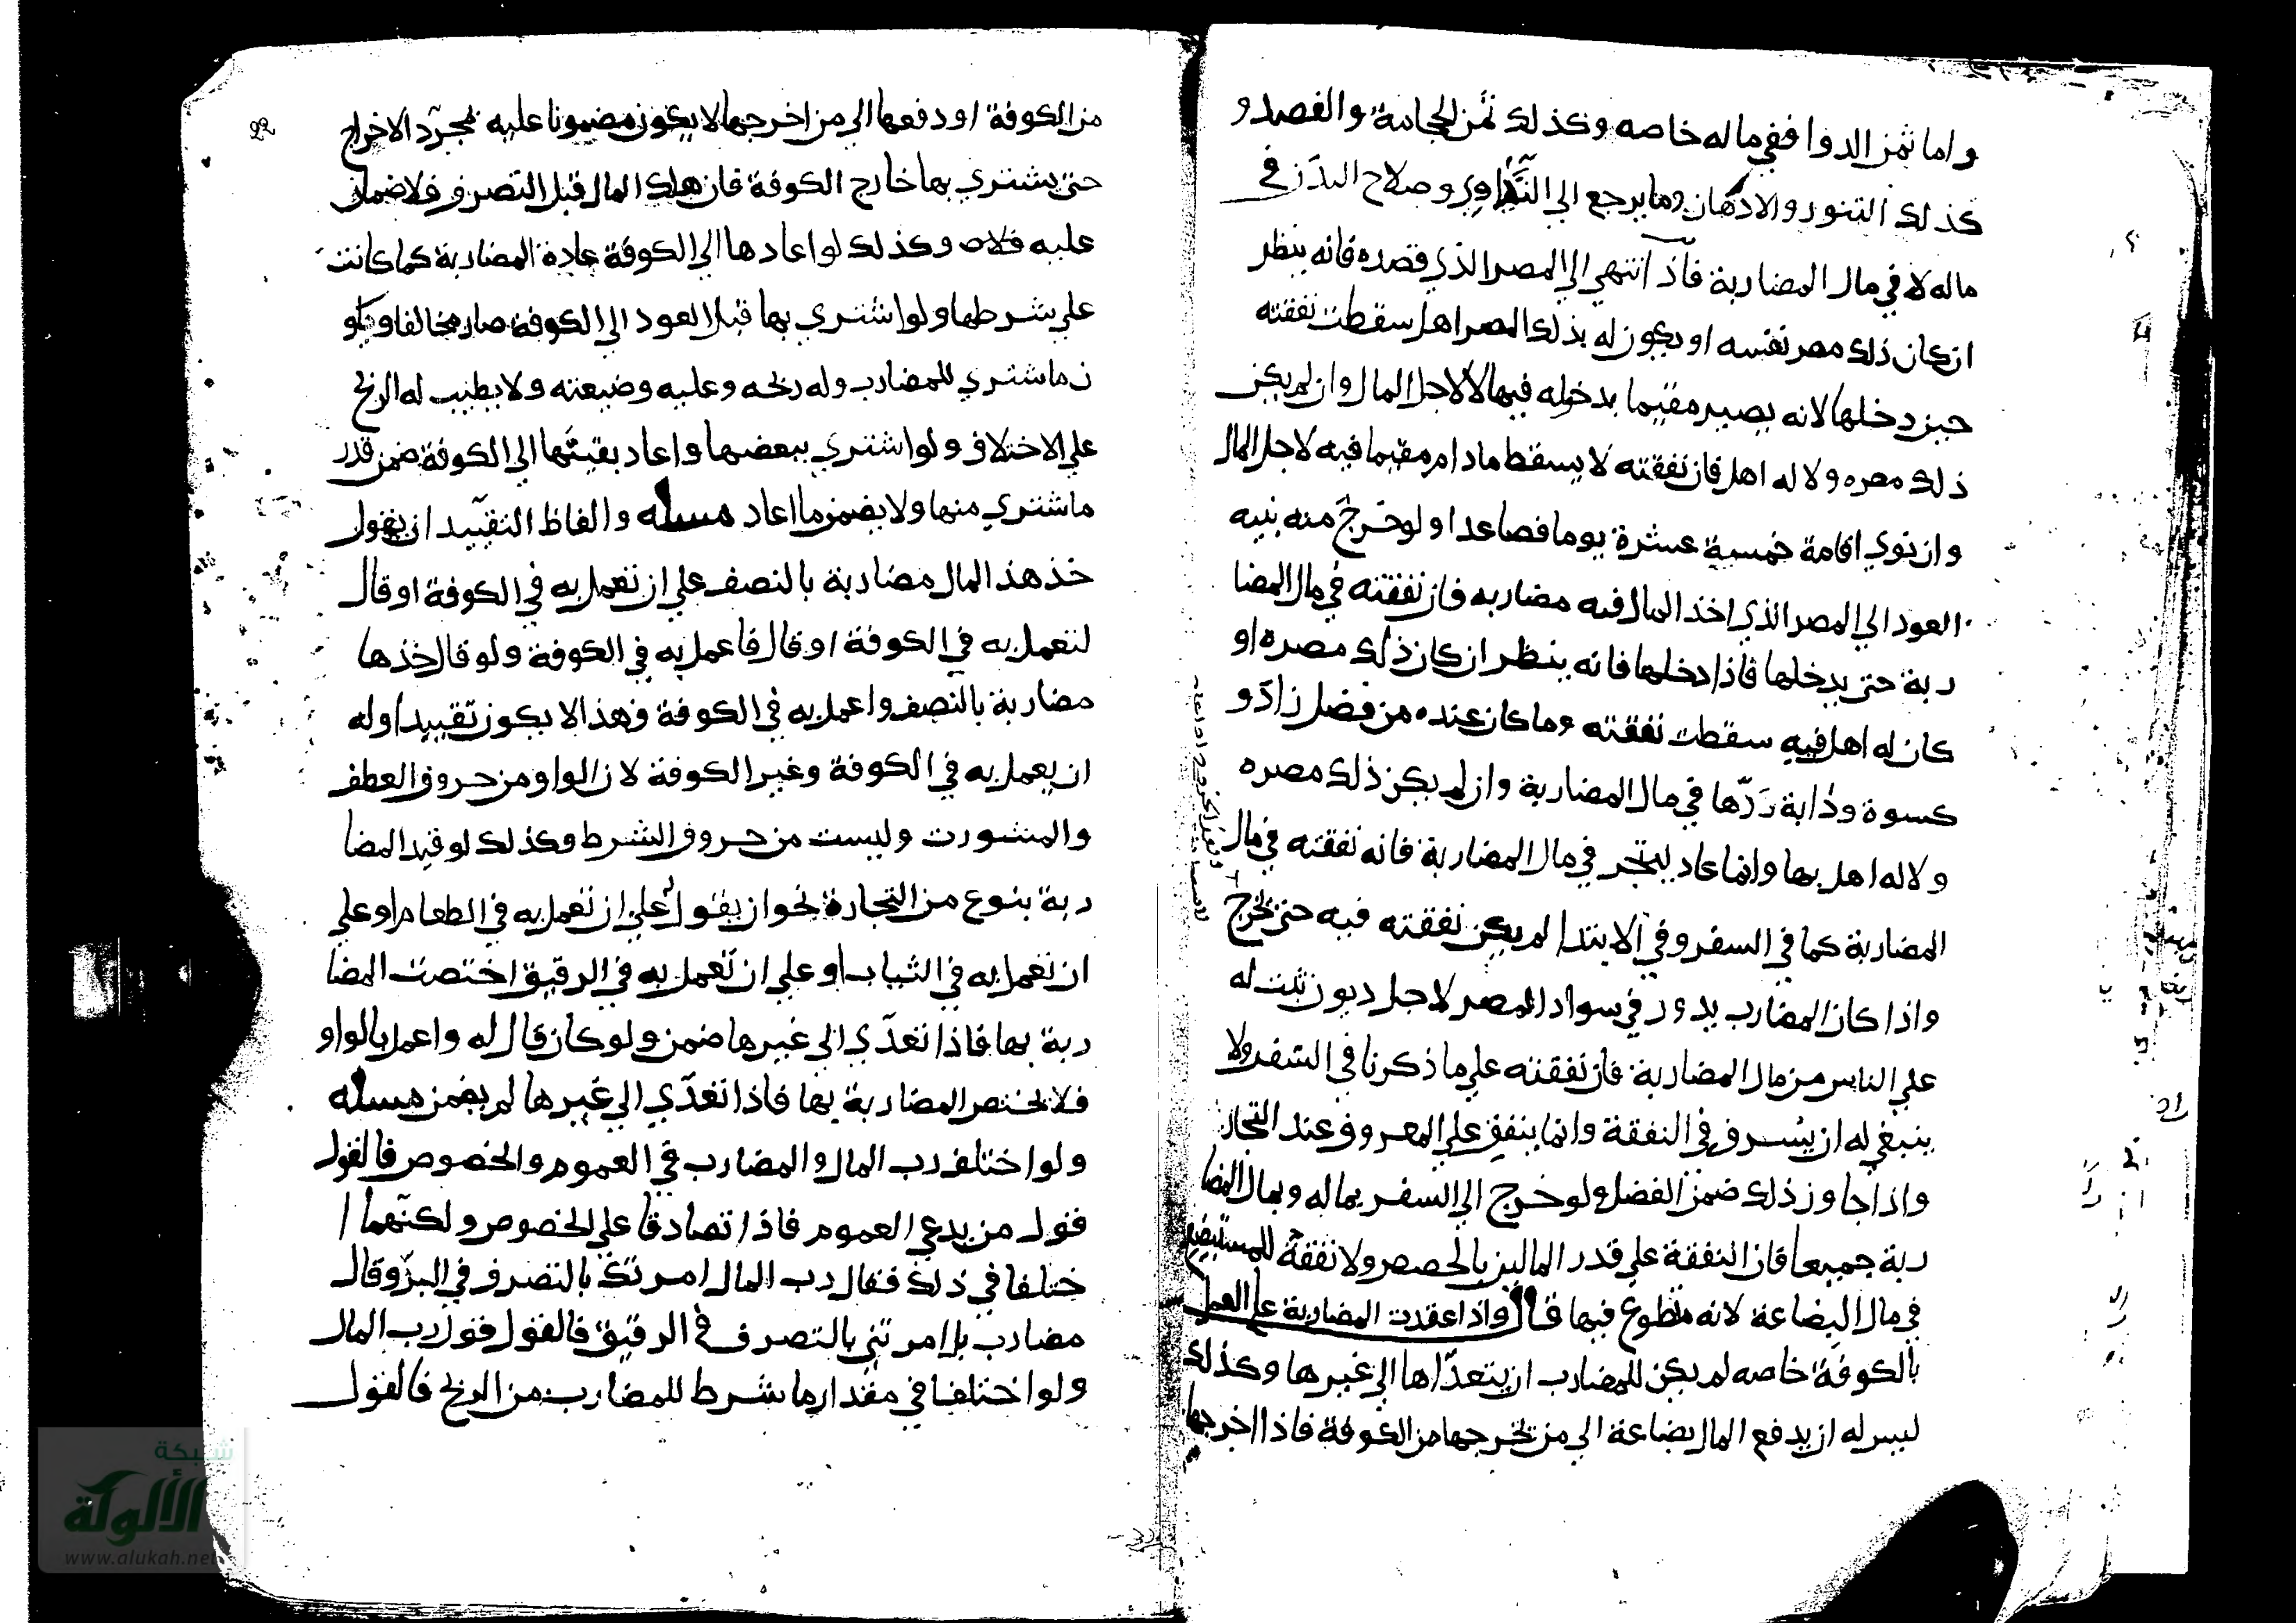 واما ثمن الدوا ففي ماله خاصه وكذلك ثمن الحجامة والفصد و
كذلك التنور والادهان وما يرجع الي التداوي وصلاح البدن في
ماله لا في مال المضاربة فاذا انتهي الي المصر الذي قصده فانه ينظر
ان كان ذلك مصر نفسه او يكون له بذلك المصر اهل سقطت نفقته
حين دخلها لانه يصير مقيما بدخوله فيها لا لاجل المال وان لم يكن
ذلك مصره ولا له اهل فان نفقته لا يسقط ما دام مقيما فيه لاجل المال
وان نوي اقامة خمسة عشرة يوما فصاعدا ولو خرج منه بنيه
العود الي المصر الذي اخذ المال فيه مضاربه فان نفقته في مال المضا
ربة حتي يدخلها فاذا دخلها فانه ينظر ان كان ذلك مصره او
كان له اهل فيه سقطت نفقته وما كان عنده من فضل زاد و
كسوة ودابة ردها في مال المضاربة وان لم يكن ذلك مصره
ولا له اهل بها وانما عاد ليتجر في مال المضاربة فانه نفقته في مال
المضاربة كما في السفر وفي الابتدا لم يكن نفقته فيه حتي يخرج
واذا كان المضارب يدور في سواد المصر لاجل ديون ثبت له
علي الناس من مال المضاربة فان نفقته علي ما ذكرنا في السفر ولا
ينبغي له ان يسرف في النفقة وانما ينفق علي المعروف عند التجار
واذا جاوز ذلك ضمن الفضل ولو خرج الي السفر بماله وبمال المضا
ربة جميعا فان النفقة علي قدر المالين بالحصص ولا نفقة للمستبضع
في مال البضاعة لانه متطوع فيها قال واذا عقدت المضاربة علي العمل
بالكوفة خاصه لم يكن للمضارب ان يتعداها الي غيرها وكذلك
ليس له ان يدفع المال بضاعة الي من يخرجها من الكوفة فاذا اخرجها
22
من الكوفة او دفعها الي من اخرجها لا يكون مضمونا عليه بمجرد الاخراج
حتي يشتري بها خارج الكوفة فان هلك المال قبل التصرف فلا ضمان
عليه فلاه وكذلك لو اعادها الي الكوفة عادة المضاربة كما كانت
علي شرطها ولو اشتري بها قبل العود الي الكوفة صار مخالفا ويكو
ن ما شتري للمضارب وله ربحه وعليه وضيعته ولا يطيب له الربح
علي الاختلاف ولو اشتري ببعضها واعاد بقيتها الي الكوفة ضمن قدر
ما شتري منها ولا يضمن ما اعاد مسله والفاظ التقييد ان يقول
خذ هذ المال مضاربة بالنصف علي ان تعمل به في الكوفة او قال
لتعمل به في الكوفة او قال فاعمل به في الكوفة ولو قال خذها
مضاربة بالنصف واعمل به في الكوفة فهذا لا يكون تقييدا وله
ان يعمل به في الكوفة وغير الكوفة لان الواو من حروف العطف
والمشورت وليست من حروف الشرط وكذلك لو قيد المضا
ربة بنوع من التجارة نحو ان يقول علي ان تعمل به في الطعام او علي
ان تعمل به في الثياب او علي ان تعمل به في الرقيق اختصت المضا
ربة بها فاذا تعدي الي غيرها ضمن ولو كان قال له واعمل بالواو
فلا يختص المضاربة بها فاذا تعدي الي غيرها لم يضمن مسله
ولو اختلف رب المال والمضارب في العموم والخصوص فالقول
قول من يدعي العموم فاذا تصادقا علي الخصوص ولكنهما ا
ختلفا في ذلك فقال رب المال امرتك بالتصرف في البز وقال
مضارب بل امرتني بالتصرف في الرقيق فالقول قول رب المال
ولو اختلفا في مقدار ما شرط للمضارب من الربح فالقول
شبكة
الألوكة
www.alukah.net